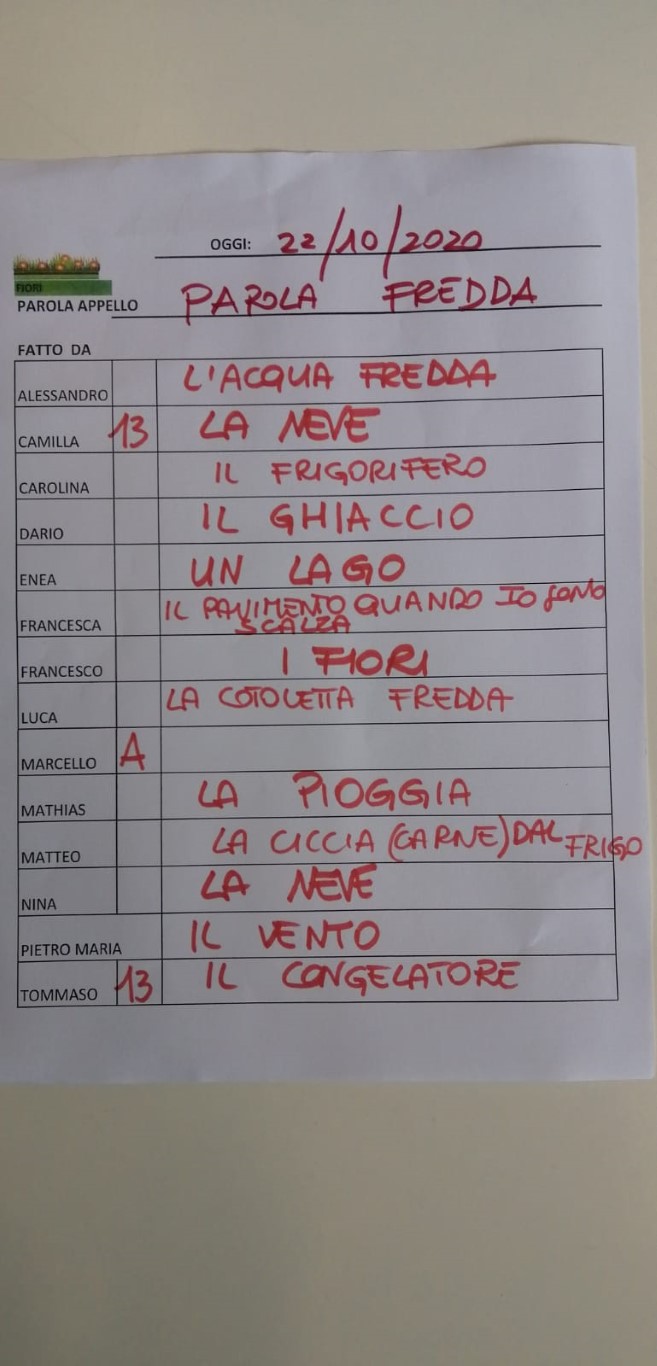 OGGI: 22/10/2020
FIORI
PAROLA APPELLO PAROLA FREDDA
FATTO DA
ALESSANDRO L'ACQUA FREDDA
CAMILLA 13 LA NEVE
CAROLINA IL FRIGORIFERO
DARIO IL GHIACCIO
ENEA UN LAGO
FRANCESCA IL PAVIMENTO QUANDO IO SONO
SCALZA
FRANCESCO I FIORI
LUCA LA COTOLETTA FREDDA
MARCELLO A
MATHIAS LA PIOGGIA
MATTEO LA CICCIA (CARNE) DAL FRIGO
NINA LA NEVE
PIETRO MARIA IL VENTO
TOMMASO 13 IL CONGELATORE